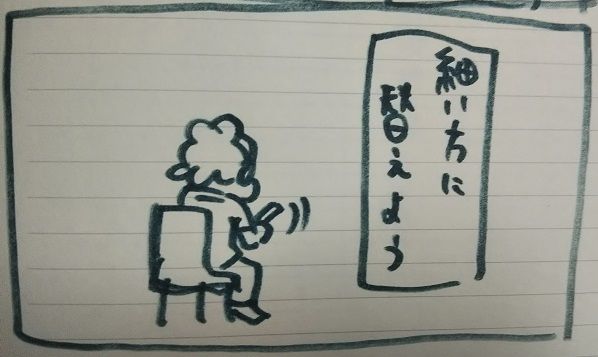 細い方に
替えよう